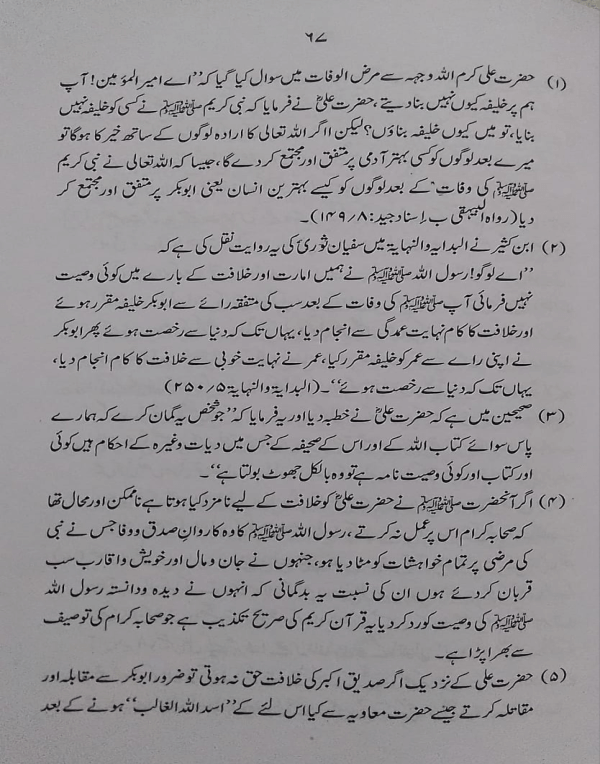 ۶۷
(۱) حضرت علی کرم اللہ وجہہ سے مرض الوفات میں سوال کیا گیا کہ ’’اے امیر المؤمنین! آپ
ہم پر خلیفہ کیوں نہیں بنا دیتے، حضرت علیؓ نے فرمایا کہ نبی کریم ﷺ نے کسی کو خلیفہ نہیں
بنایا، تو میں کیوں خلیفہ بناؤں؟ لیکن ااگر اللہ تعالی کا ارادہ لوگوں کے ساتھ خیر کا ہوگا تو
میرے بعد لوگوں کو کسی بہتر آدمی پر متفق اور مجتمع کردے گا، جیسا کہ اللہ تعالی نے نبی کریم
ﷺ کی وفات کے بعد لوگوں کو کیسے بہترین انسان یعنی ابوبکر پر متفق اور مجتمع کر
دیا (رواہ البیہقی ب إسناد جید: ۸؍۱۴۹)۔
(۲) ابن کثیر نے البدایہ والنہایۃ میں سفیان ثوری کی یہ روایت نقل کی ہے کہ
’’اے لوگو! رسول اللہ ﷺ نے ہمیں امارت اور خلافت کے بارے میں کوئی وصیت
نہیں فرمائی آپ ﷺ کی وفات کے بعد سب کی متفقہ رائے سے ابوبکر خلیفہ مقرر ہوئے
اور خلافت کا کام نہایت عمدگی سے انجام دیا، یہاں تک کہ دنیا سے رخصت ہوئے پھر ابوبکر
نے اپنی رائے سے عمر کو خلیفہ مقرر کیا، عمر نے نہایت خوبی سے خلافت کا کام انجام دیا،
یہاں تک کہ دنیا سے رخصت ہوئے‘‘۔ (البدایۃ والنہایۃ ۵؍۲۵۰)
(۳) صحیحین میں ہے کہ حضرت علیؓ نے خطبہ دیا اور یہ فرمایا کہ ’’جو شخص یہ گمان کرے کہ ہمارے
پاس سوائے کتاب اللہ کے اور اس کے صحیفہ کے جس میں دیات وغیرہ کے احکام ہیں کوئی
اور کتاب اور کوئی وصیت نامہ ہے تو وہ بالکل جھوٹ بولتا ہے‘‘۔
(۴) اگر آنحضرت ﷺ نے حضرت علیؓ کو خلافت کے لیے نامزد کیا ہوتا ہے ناممکن اور محال تھا
کہ صحابہ کرام اس پر عمل نہ کرتے، رسول اللہ ﷺ کا وہ کاروانِ صدق و وفا جس نے نبی
کی مرضی پر تمام خواہشات کو مٹا دیا ہو، جنہوں نے جان و مال اور خویش واقارب سب
قربان کردئے ہوں ان کی نسبت یہ بدگمانی کہ انہوں نے دیدہ ودانستہ رسول اللہ
ﷺ کی وصیت کو رد کر دیا یہ قرآن کریم کی صریح تکذیب ہے جو صحابہ کرام کی توصیف
سے بھرا پڑا ہے۔
(۵) حضرت علی کے نزدیک اگر صدیق اکبر کی خلافت حق نہ ہوتی تو ضرور ابوبکر سے مقابلہ اور
مقاتلہ کرتے جیسے حضرت معاویہ سے کیا اس لئے کے ’’اسد اللہ الغالب‘‘ ہونے کے بعد